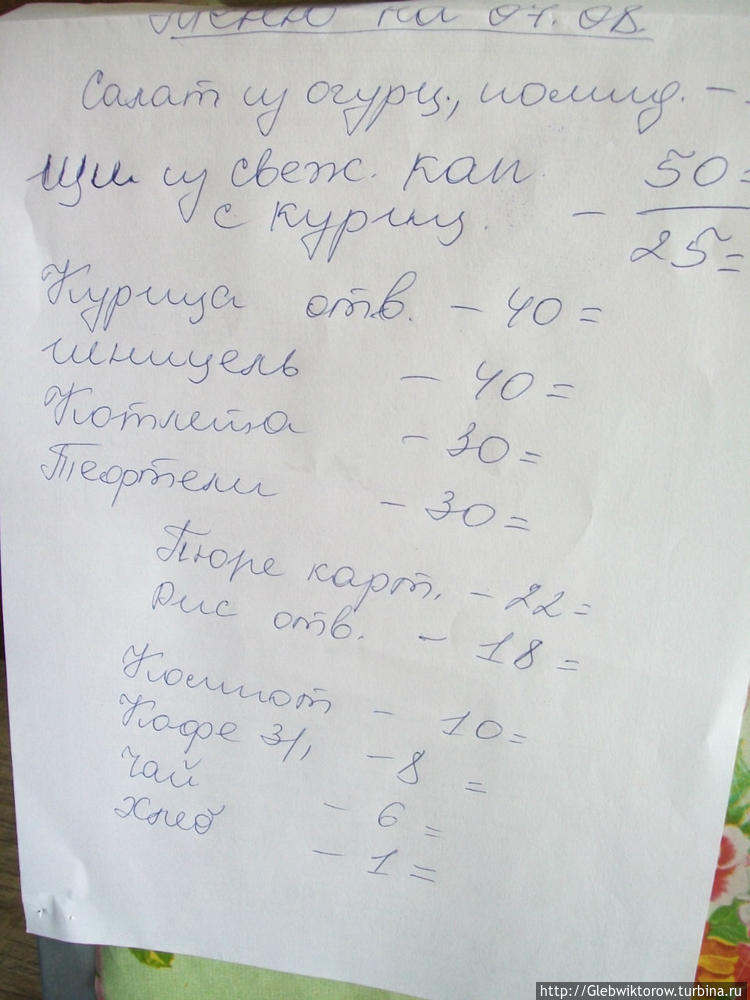 Меню на 07.08.
Салат из огурц., помид. –
Щи из свеж. кап. 50=
с куриц. – 25=
Курица отв. – 40=
Шницель – 40=
Котлета – 30=
Тефтели – 30=
Пюре карт. – 22=
Рис отв. – 18=
Компот – 10=
Кофе 3/1 – 8=
Чай – 6=
Хлеб – 1=
http://Glebwiktorow.turbina.ru